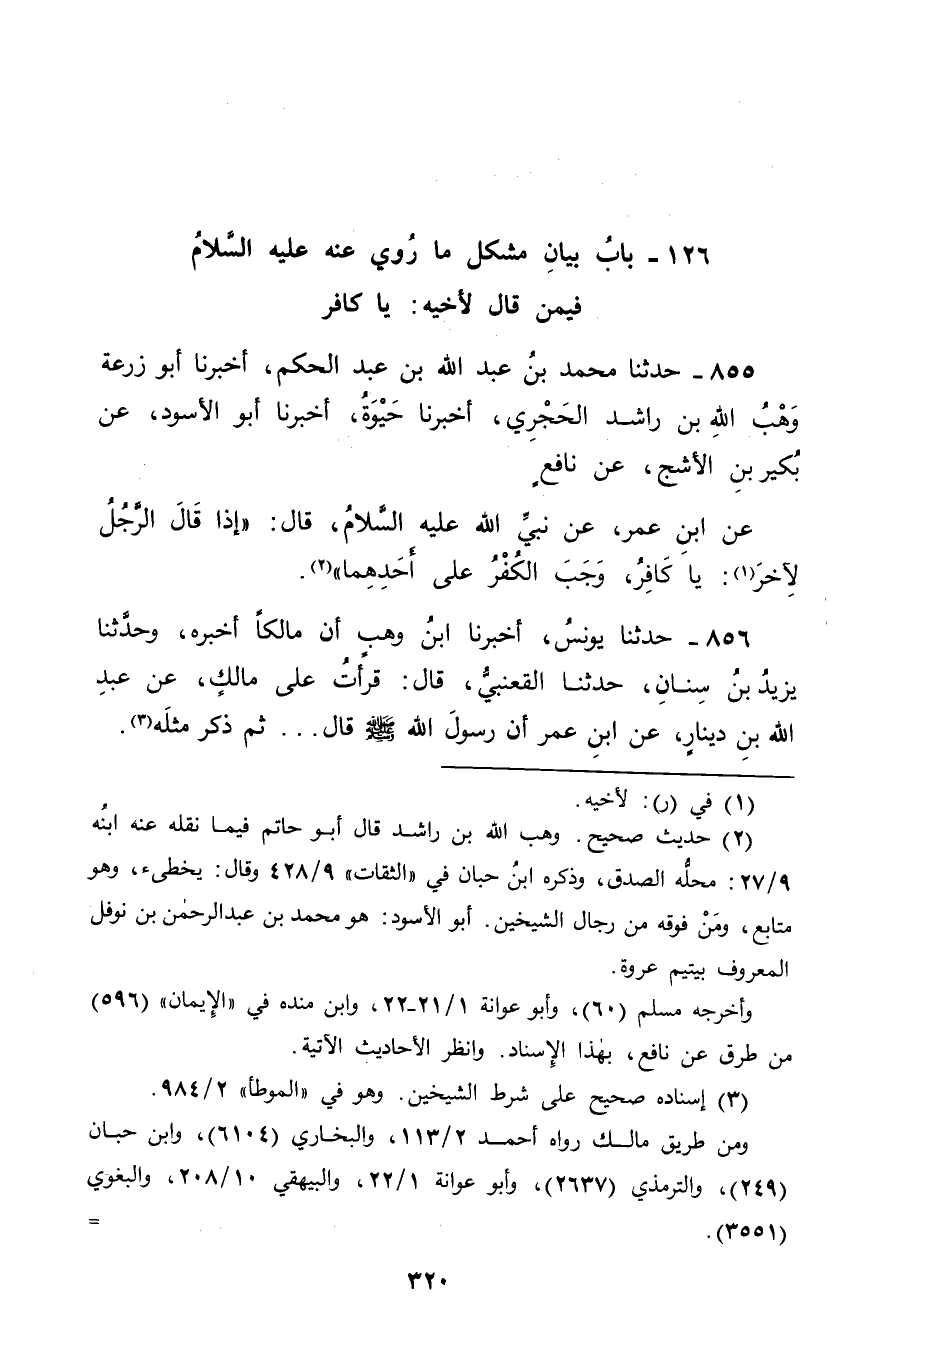 ١٢٦ ـ بابُ بيانِ مشكل ما رُوي عنه عليه السَّلامُ
فيمن قال لأخيه: يا كافر
٨٥٥ ـ حدثنا محمد بنُ عبد الله بن عبد الحكم، أخبرنا أبو زرعة
وَهْبُ اللهِ بن راشد الحَجْرِي، أخبرنا حَيْوَةُ، أخبرنا أبو الأسود، عن
بُكير بنِ الأشج، عن نافعٍ
عن ابنِ عمر، عن نبيِّ الله عليه السَّلامُ، قال: «إذا قَالَ الرَّجُلُ
لِآخرَ(١): يا كَافِرُ، وَجَبَ الكُفْرُ على أَحَدِهِما»(٢).
٨٥٦ ـ حدثنا يونسُ، أخبرنا ابنُ وهبٍ أن مالكاً أخبره، وحدَّثنا
يزيدُ بنُ سِنانِ، حدثنا القعنبيُّ، قال: قرأتُ على مالكٍ، عن عبدِ
الله بنِ دينارٍ، عن ابنِ عمر أن رسولَ الله ﷺ قال... ثم ذكر مثلَه(٣).
(١) في (ر): لأخيه.
(٢) حديث صحيح. وهب الله بن راشد قال أبو حاتم فيما نقله عنه ابنُه
٢٧/٩: محلُّه الصدق، وذكره ابنُ حبان في «الثقات» ٤٢٨/٩ وقال: يخطىء، وهو
متابع، ومَنْ فوقه من رجال الشيخين. أبو الأسود: هو محمد بن عبدالرحمٰن بن نوفل
المعروف بيتيم عروة.
وأخرجه مسلم (٦٠)، وأبو عوانة ٢١/١ـ٢٢، وابن منده في «الإيمان» (٥٩٦)
من طرق عن نافع، بهٰذا الإسناد. وانظر الأحاديث الآتية.
(٣) إسناده صحيح على شرط الشيخين. وهو في «الموطأ» ٩٨٤/٢.
ومن طريق مالك رواه أحمد ١١٣/٢، والبخاري (٦١٠٤)، وابن حبان
(٢٤٩)، والترمذي (٢٦٣٧)، وأبو عوانة ٢٢/١، والبيهقي ٢٠٨/١٠، والبغوي
(٣٥٥١). =
٣٢٠